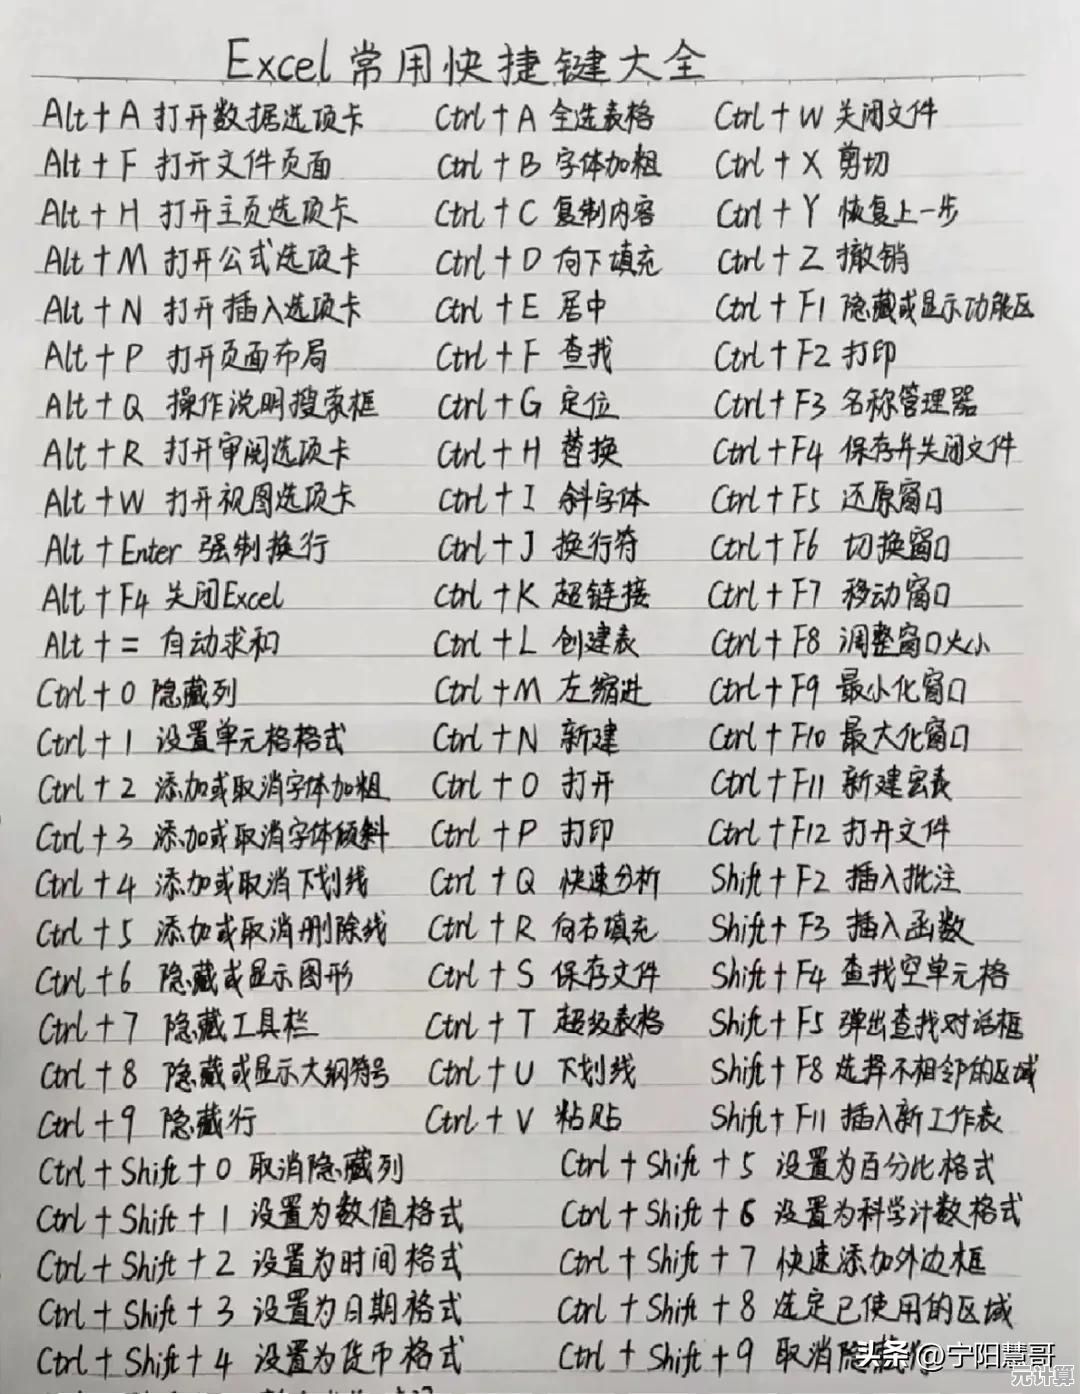 Excel常用快捷键大全
Alt+A 打开数据选项卡
Alt+F 打开文件页面
Alt+H 打开主页选项卡
Alt+M 打开公式选项卡
Alt+N 打开插入选项卡
Alt+P 打开页面布局
Alt+Q 操作说明搜索框
Alt+R 打开审阅选项卡
Alt+W 打开视图选项卡
Alt+Enter 强制换行
Alt+F4 关闭Excel
Alt+= 自动求和
Ctrl+0 隐藏列
Ctrl+1 设置单元格格式
Ctrl+2 添加或取消字体加粗
Ctrl+3 添加或取消字体倾斜
Ctrl+4 添加或取消下划线
Ctrl+5 添加或取消删除线
Ctrl+6 隐藏或显示图形
Ctrl+7 隐藏工具栏
Ctrl+8 隐藏或显示大纲符号
Ctrl+9 隐藏行
Ctrl+A 全选表格
Ctrl+B 字体加粗
Ctrl+C 复制内容
Ctrl+D 向下填充
Ctrl+E 居中
Ctrl+F 查找
Ctrl+G 定位
Ctrl+H 替换
Ctrl+I 斜字体
Ctrl+J 换行符
Ctrl+K 超链接
Ctrl+L 创建表
Ctrl+M 左缩进
Ctrl+N 新建
Ctrl+O 打开
Ctrl+P 打印
Ctrl+Q 快速分析
Ctrl+R 向右填充
Ctrl+S 保存文件
Ctrl+T 超级表格
Ctrl+U 下划线
Ctrl+V 粘贴
Ctrl+W 关闭文件
Ctrl+X 剪切
Ctrl+Y 恢复上一步
Ctrl+Z 撤销
Ctrl+F1 隐藏或显示功能区
Ctrl+F2 打印
Ctrl+F3 名称管理器
Ctrl+F4 保存并关闭文件
Ctrl+F5 还原窗口
Ctrl+F6 切换窗口
Ctrl+F7 移动窗口
Ctrl+F8 调整窗口大小
Ctrl+F9 最小化窗口
Ctrl+F10 最大化窗口
Ctrl+F11 新建宏表
Ctrl+F12 打开文件
Shift+F2 插入批注
Shift+F3 插入函数
Shift+F4 查找空单元格
Shift+F5 弹出查找对话框
Shift+F8 选择不相邻的区域
Shift+F11 插入新工作表
Ctrl+Shift+0 取消隐藏列
Ctrl+Shift+1 设置为数值格式
Ctrl+Shift+2 设置为时间格式
Ctrl+Shift+3 设置为日期格式
Ctrl+Shift+4 设置为货币格式
Ctrl+Shift+5 设置为百分比格式
Ctrl+Shift+6 设置为科学计数格式
Ctrl+Shift+7 快速添加外边框
Ctrl+Shift+8 选定已使用的区域
Ctrl+Shift+9 取消隐藏
头条@宁阳慧哥
元计算